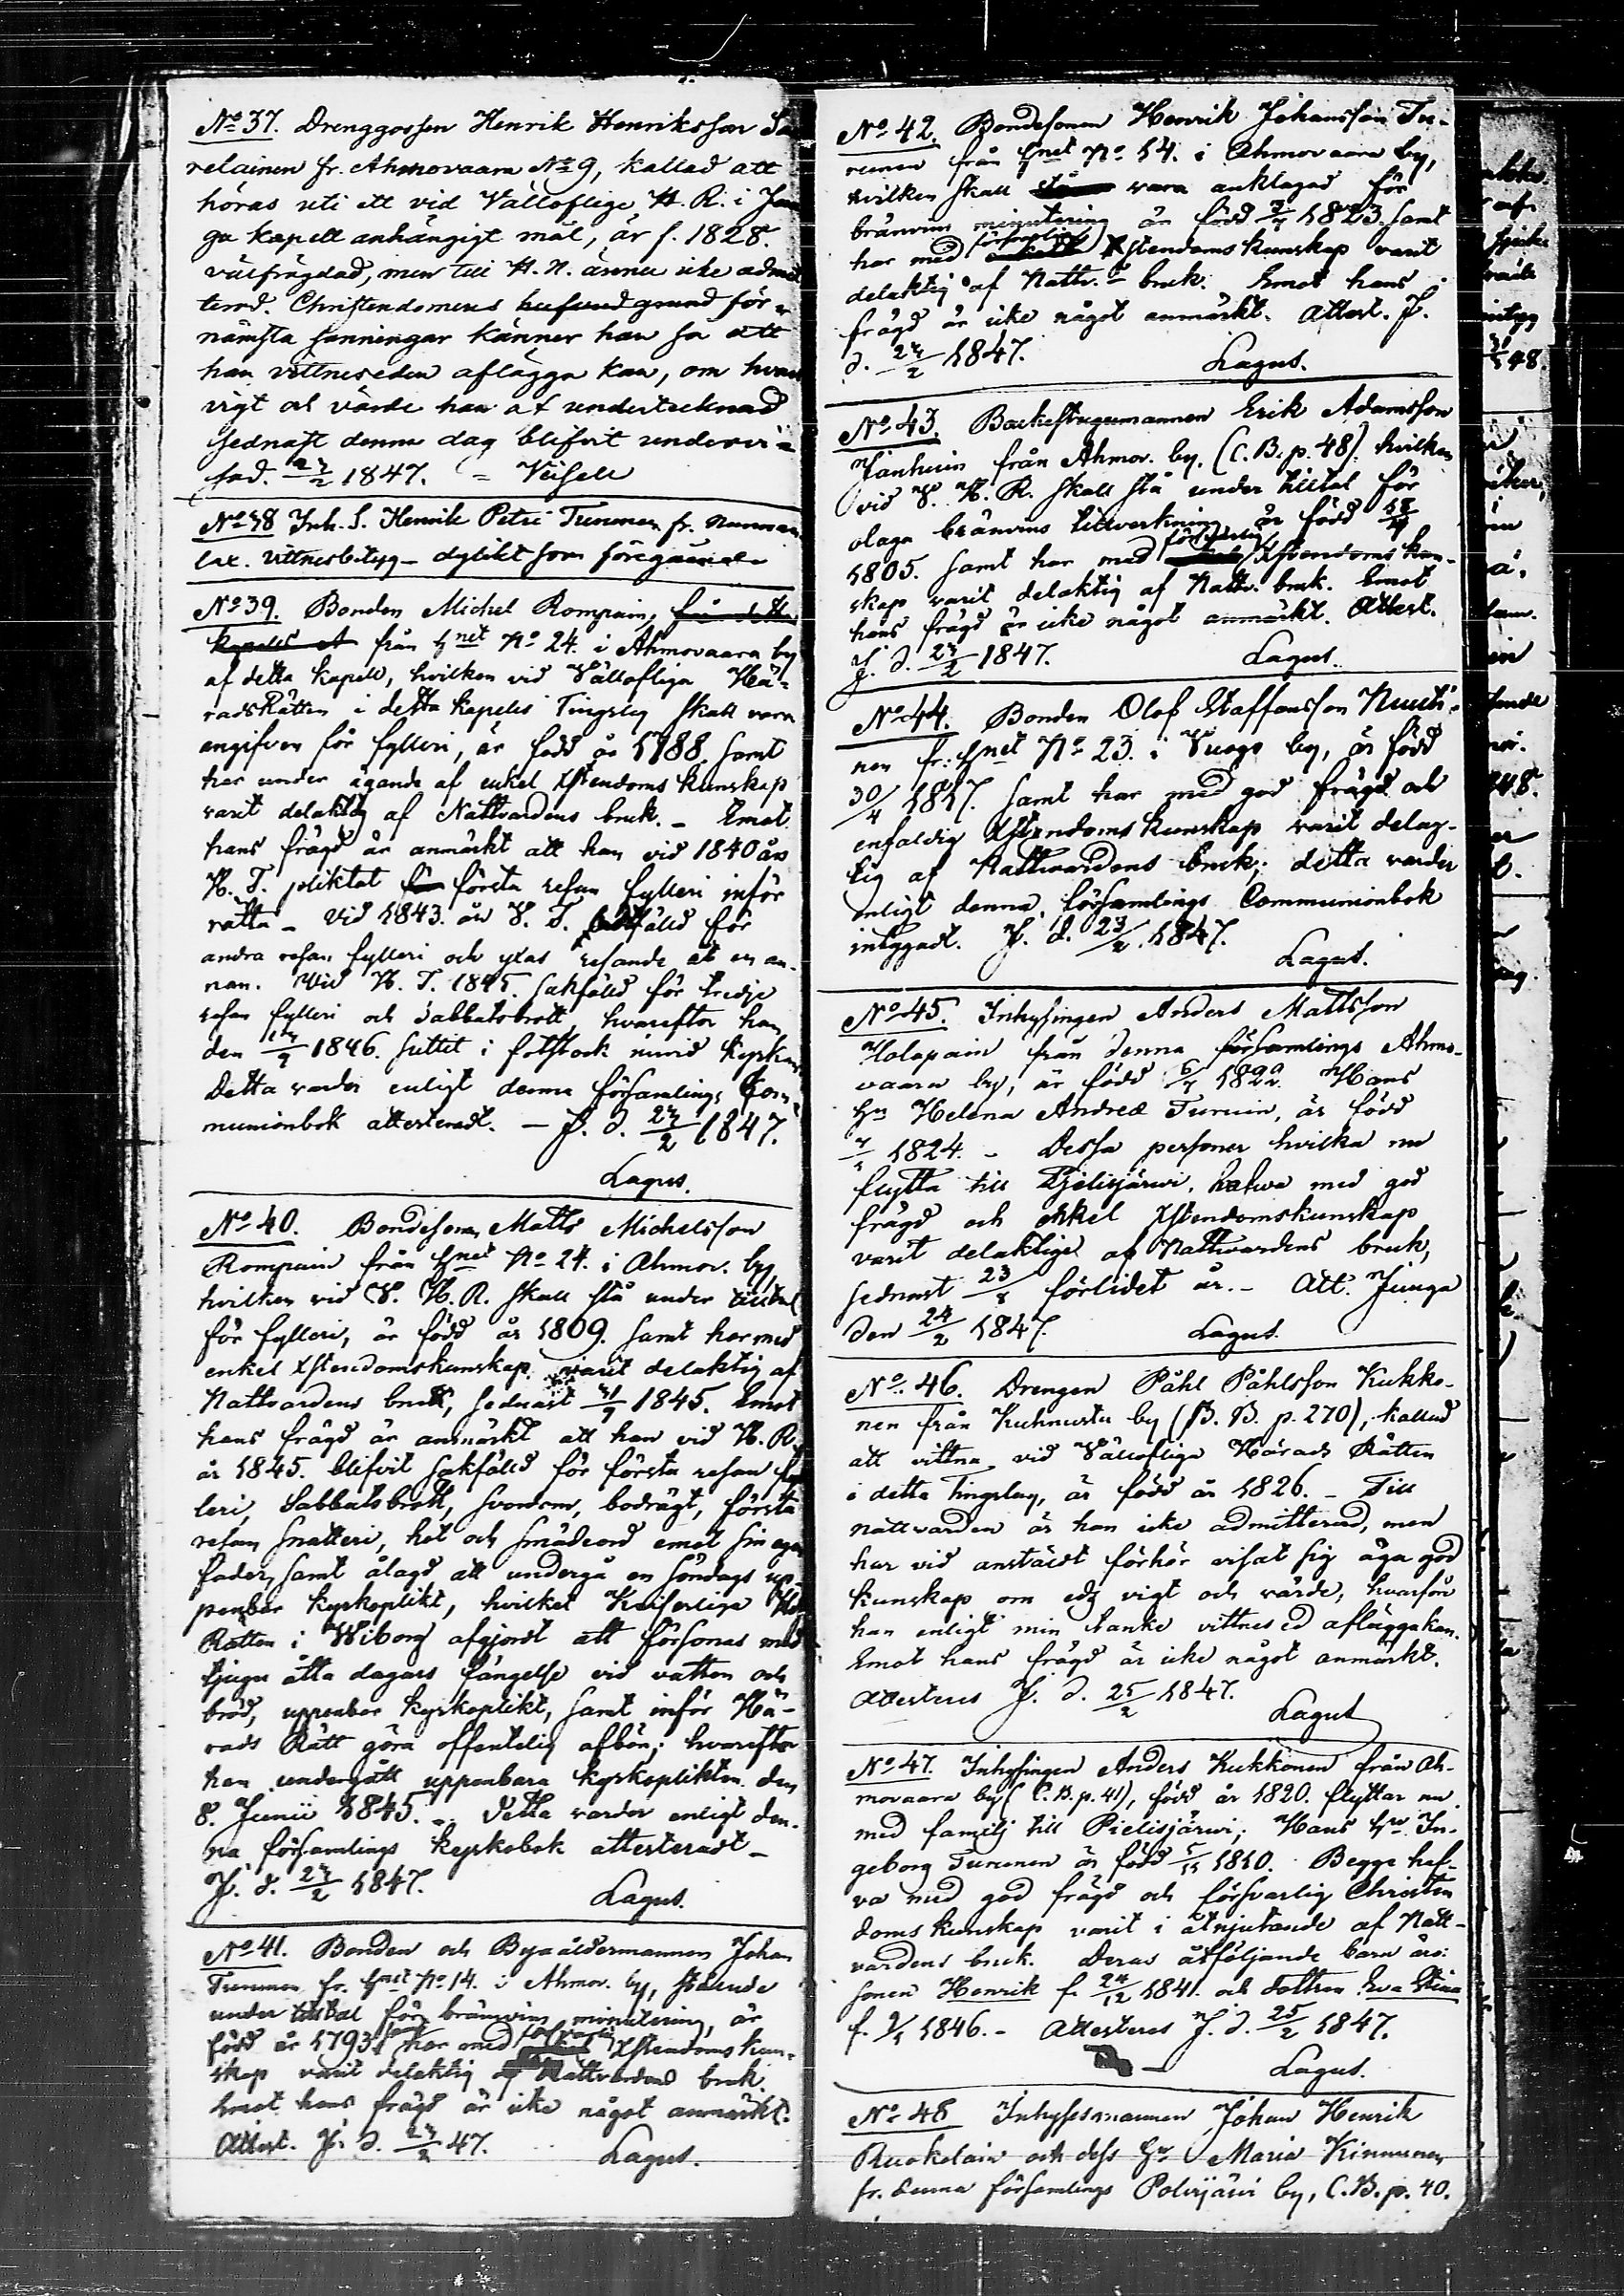 No 37. Drenggossen Henrik Henriksson Sa
relainen fr. Ahmovaara No 9, kallad att
höras uti ett vid Välloflige H. R. i Juu
ga kapell anhängigt mål, är f. 1828.
välfrägdad, men till H. N. ännu icke admit
terad. Christendomens hufvud grund för=
nämsta sanningar känner han så att
han vittneseden aflägga kan, om hvars
vigt och värde han af undertecknad
sednast denna dag blifvit undervi=
sad. 23/2 1847. =
No 38 Inh. S. Henrik Petri Turunen fr.
lax. Vittnesbetyg - dylikt som föregående
No 39. Bonden Michel Rompain, från detta
kapells A från hnet No 24. i Ahmovaara by
af detta kapell, hvilken vid Välloflige Hä=
radsRätten i detta kapells Tingslag skall vara
angifven för fylleri, är född år 1788. samt
har under ägande af enkel Xstendoms kunskap
varit delaktig af Nattvardens bruk. - Emot
hans frägd är anmärkt att han vid 1840 års
H. T. pliktat för första resan fylleri inför
rätta - Vid 1843. års V. T. sakfälld för
andra resan fylleri och yxas resande åt en an-
nan. Vid H. T. 1845. sakfälld för tredje
resan fylleri och sabbatsbrott, hvarefter han
den 1846. suttit i fotstock invid kyrkan
Detta varder enligt denna församlings Com=
munionbok attesteradt. - J. d. 23/2 1847.
Lagus.
No 40. Bondesonen Matts Michelsson
Rompain från hnet No 24. i Ahmov. by,
hvilken vid V. H. R. skall stå under tilltal
för fylleri, är född år 1809. samt har med
enkel Xstendomskunskap varit delaktig af
Nattvardens bruk, sednast 1845. Emot
hans frägd är anmärkt att han vid H. R.
år 1845. blifvit sakfälld för första resan fyl
leri, Sabbatsbrott, svordom, bodrägt, första
resan snatteri, hot och smädeord emot sin egen
fader, samt ålagd att undergå en söndags up-
penbar kyrkoplikt, hvilket Kejserliga Hof
Rätten i Wiborg afgjordt att försonas med
tjugu åtta dagars fängelse vid vatten och
bröd, uppenbar kyrkoplikt, samt inför Hä-
rads Rätt göra offentelig afbön; hvarefter
han undergått uppenbara kyrkoplikten den
8. Junii 1845. - Detta varder enligt den-
na församlings kyrkobok attesteradt -
J. d. 23/2 1847.
Lagus.
No 41. Bonden och Byaåldermannen Johan
Turunen fr. hnet No 14. i Ahmov. by, stående
under tilltal för bränvins minutering, är
född år 1793. samt har med försvarlig Xstendoms kun-
skap varit delaktig af Nattvardens bruk.
Emot hans frägd är icke något anmärkt.
Attest. J. d. 23/2 47.
Lagus.
No 42. Bondesonen Henrik Johansson Tu-
runen från hnet No 14. i Ahmovaara by,
hvilken skall vara anklagad för
bränvins minutering är född 1823 samt
har med försvarlig Xstendoms kunskap varit
delaktig af Nattv. bruk. Emot hans
frägd är icke något anmärkt. Attest. J.
d. 23/2 1847.
Lagus.
No 43. Backestugumannen Erik Adamsson
från Ahmov. by. (C. B. p. 48). hvilken
vid V. H. R. skall stå under tilltal för
olaga bränvins tillverkning, är född
1805. samt har med försvarlig Xstendoms kun-
skap varit delaktig af Nattv. bruk. Emot
hans frägd är icke något anmärkt. Attest.
J. d. 23/2 1847.
Lagus.
No 44. Bonden Olof Staffansson Nuuti-
nen fr: hnet No 23. i Vuogo by, är född
30/4 1817. samt har med god frägd och
enfaldig Xstendoms kunskap varit delag-
tig af Nattvardens bruk; detta varder
enligt denna församlings Communionbok
intygadt. J. d. 23/2 1847.
Lagus.
No 45. Inhysingen Anders Mattsson
Holapain från denna församlings Ahmo-
vaara by, är född 182. Hans
hu Helena Andreæ Turuin, är född
1824. - Dessa personer hvilka nu
flytta till Pjelisjärvi, hafva med god
frägd och enkel Xstendomskunskap
varit delaktige af Nattvardens bruk,
sednast 23/8 förlidet år. - Att. Juuga
den 24/2 1847.
Lagus.
No 46. Drengen Påhl Påhlsson Kukko-
nen från Kuhnusta by (B. B. p. 270), kallad
att vittna vid Välloflige Härads Rätten
i detta Tingslag, är född år 1826. - Till
nattvarden är han icke admitterad, men
har vid anstäldt förhör visat sig äga god
kunskap om edz vigt och värde, hvarför
han enligt min tanke vittnes ed aflägga kan.
Emot hans frägd är icke något anmärkt.
Attesteras J. d. 25/2 1847.
Lagus
No 47. Inhysingen Anders Kukkonen från Ah-
movaara by (C. B. p. 41), född år 1820. flyttar nu
med familj till Pielisjärvi; Hans hu In-
geborg Turunen är född 1810. Begge haf-
va med god frägd och försvarlig Christen
doms kunskap varit i åtnjutande af Natt-
vardens bruk. Deras åtföljande barn äro:
sonen Henrik f. 24/12 1841. och dottren Eva Stina
f. 1846. - Attesteras J. d. 25/2 1847.
Lagus.
No 48 Inhyfesmannen Johan Henrik
Ruokolain och dess hu Maria Kinnunen
fr. denna församlings Polvijärvi by, C. B. p. 40.